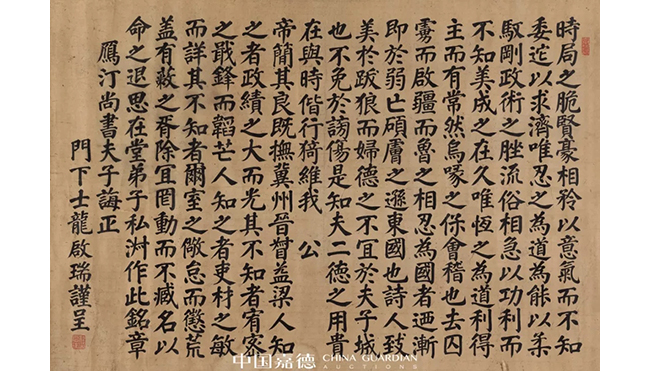 時局之脆賢豪相矜以意氣而不知
委迱以求濟唯忍之為道為能以柔
馭剛政術之脞流俗相急以功利而
不知美成之在久唯恆之為道利得
主而有常然烏喙之保會稽也去囚
虜而啟疆而魯之相忍為國者迺漸
即於弱亡碩膚之遜東國也詩人致
美於跋狼而婦德之不宜於夫子城
也不免於謗傷是知夫二德之用貴
在與時偕行猗維我 公
帝簡其良既撫冀州晉督益梁人知
之者政績之大而光其不知者宥密
之戢鋒而韜芒人知之者吏材之敏
而詳其不知者爾室之儆怠而懲荒
蓋有蔽之胥除宜罔動而不臧名以
命之退思在堂弟子私淑作此銘章
鴈汀尚書夫子誨正
門下士龍啟瑞謹呈
中国嘉德 CHINA GUARDIAN
AUCTIONS